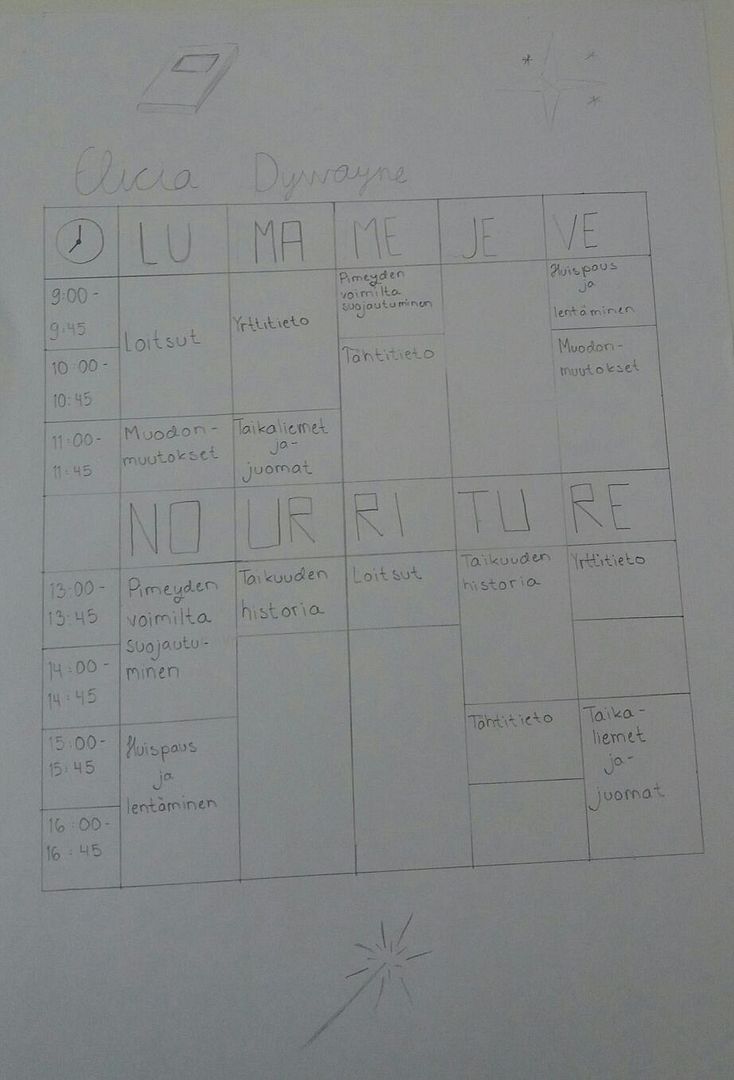 Elicia Dywayne
LU MA ME JE VE
9:00-
9:45
Loitsut
Yrttitieto
Pimeyden
voimilta
suojautuminen
Huispaus
ja
lentäminen
10:00-
10:45
Tähtitieto
Muodon-
muutokset
11:00-
11:45
Muodon-
muutokset
Taikaliemet
ja-
juomat
NO UR RI TU RE
13:00-
13:45
Pimeyden
voimilta
suojautu-
minen
Taikuuden
historia
Loitsut
Taikuuden
historia
Yrttitieto
14:00-
14:45
15:00-
15:45
Huispaus
ja
lentäminen
Tähtitieto
Taika-
liemet
ja-
juomat
16:00-
16:45